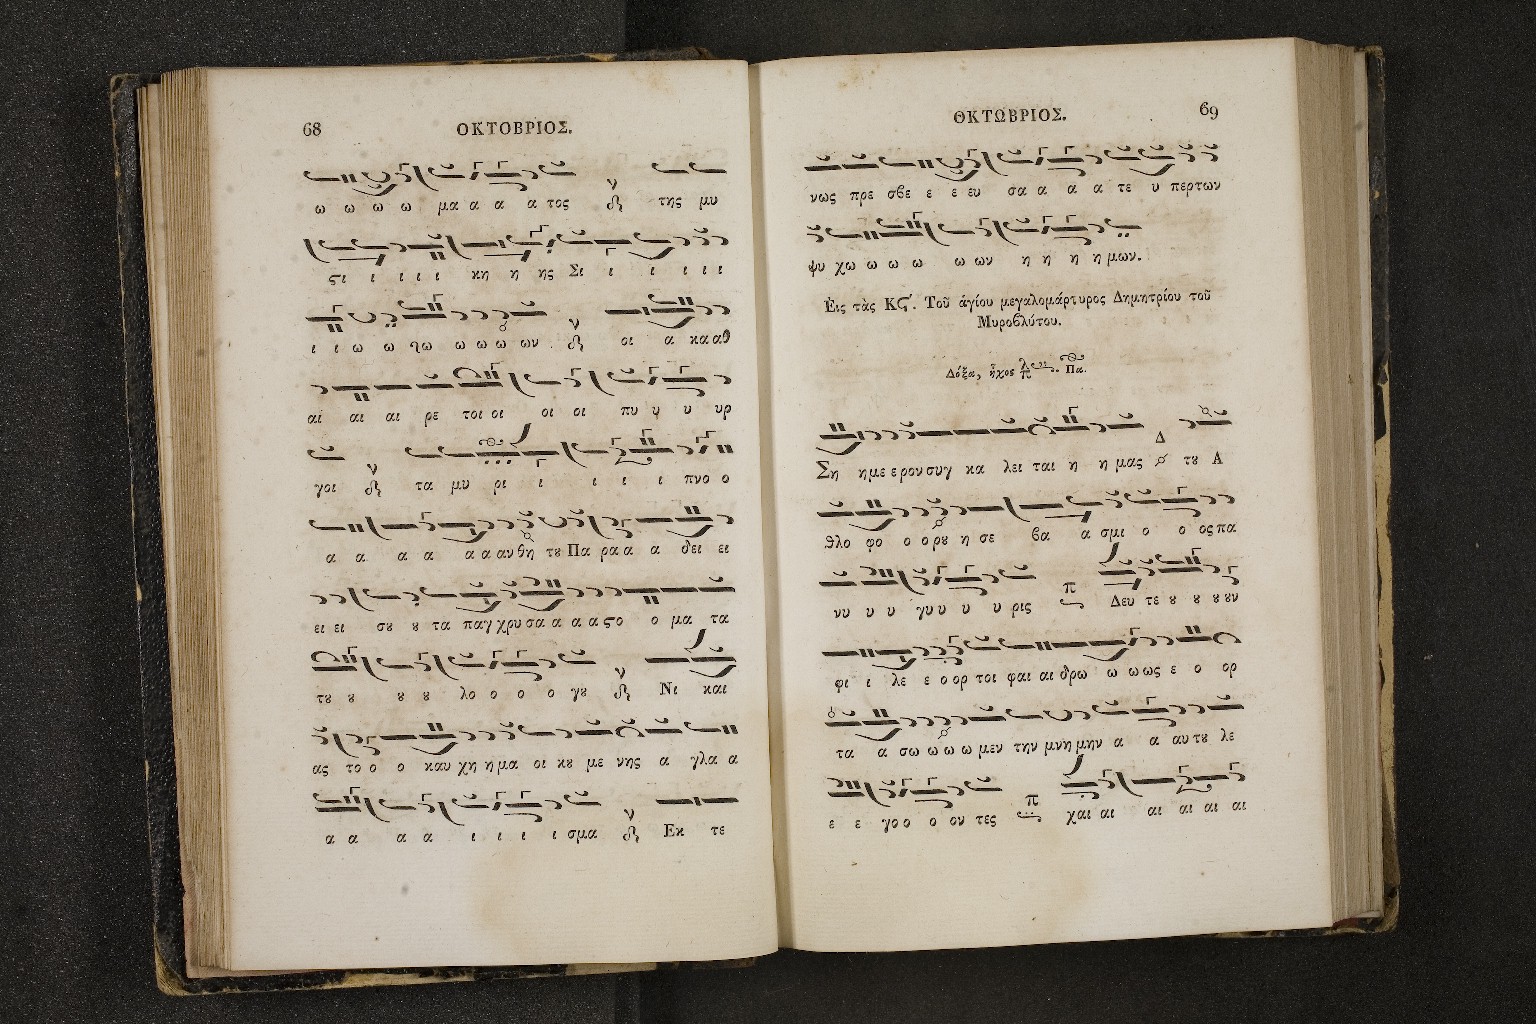 68
ΟΚΤΟΒΡΙΟΣ.
ω ω ω ω μα α α α τος της μυ
ςι ι ι ι ι κη η ης Σι ι ι ι ι ι
ι ι ω ω ω ω ω ω ων οι α κα αθ
αι αι αι ρε τοι οι οι οι πυ υ υ υρ
γοι τα μυ ρι ι ι ι ι πνο ο
α α α α α α αν θη τȣ Πα ρα α α δει ει
ει ει σȣ ȣ τα παγ χρυ σα α α α ςο ο μα τα
τȣ ȣ ȣ ȣ λο ο ο ο ο γȣ Νι και
ας το ο ο καυ χη η μα οι κȣ με νης α γλα α
α α α α ι ι ι ι ι σμα Εκ τε
ΘΚΤΩΒΡΙΟΣ.
69
νως πρε σβε ε ε ευ σα α α α τε υ περ των
ψυ χω ω ω ω ω ων η η η η μων.
Εις τὰς Κϛ΄. Τοῦ ἁγίου μεγαλομάρτυρος Δημητρίου τοῦ
Μυροβλύτου.
Δόξα, ἦχος Πα.
Ση ημε ε ρον συγ κα λει ται η η μας Δ τȣ Α
θλο φο ο ο ρȣ η σε βα α σμι ο ο ος πα
νυ υ υ γυ υ υ υ ρις π Δευ τε ȣ ȣ ȣ ȣν
φι ι λε ε ο ορ τοι φαι αι δρω ω ω ως ε ο ορ
τα α σω ω ω ω μεν την μνη μην α α αυ τȣ λε
ε ε γο ο ο ον τες π χαι αι αι αι αι αι